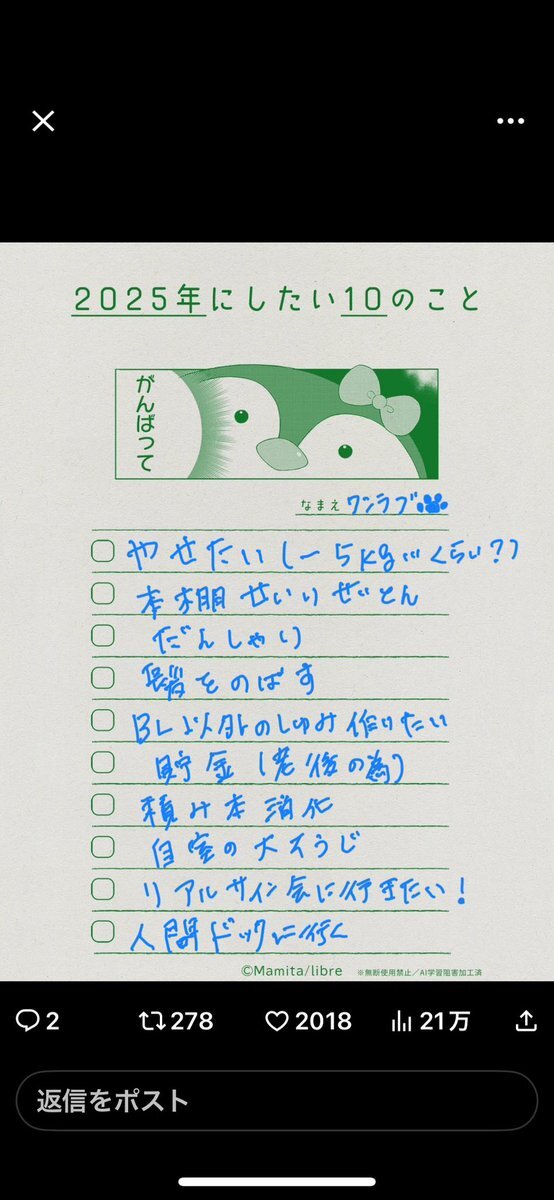 2025年にしたい10のこと
がんばって
なまえ ワンラブ
やせたい(ー5kgくらい?)
本棚せいりせいとん
だんしゃり
髪をのばす
BL以外のしゅみ作りたい
貯金(老後の為)
積み本消化
自室の大そうじ
リアルサイン会に行きたい!
人間ドックに行く
©Mamita/libre ※無断使用禁止/AI学習阻害加工済
2 278 2018 21万
返信をポスト